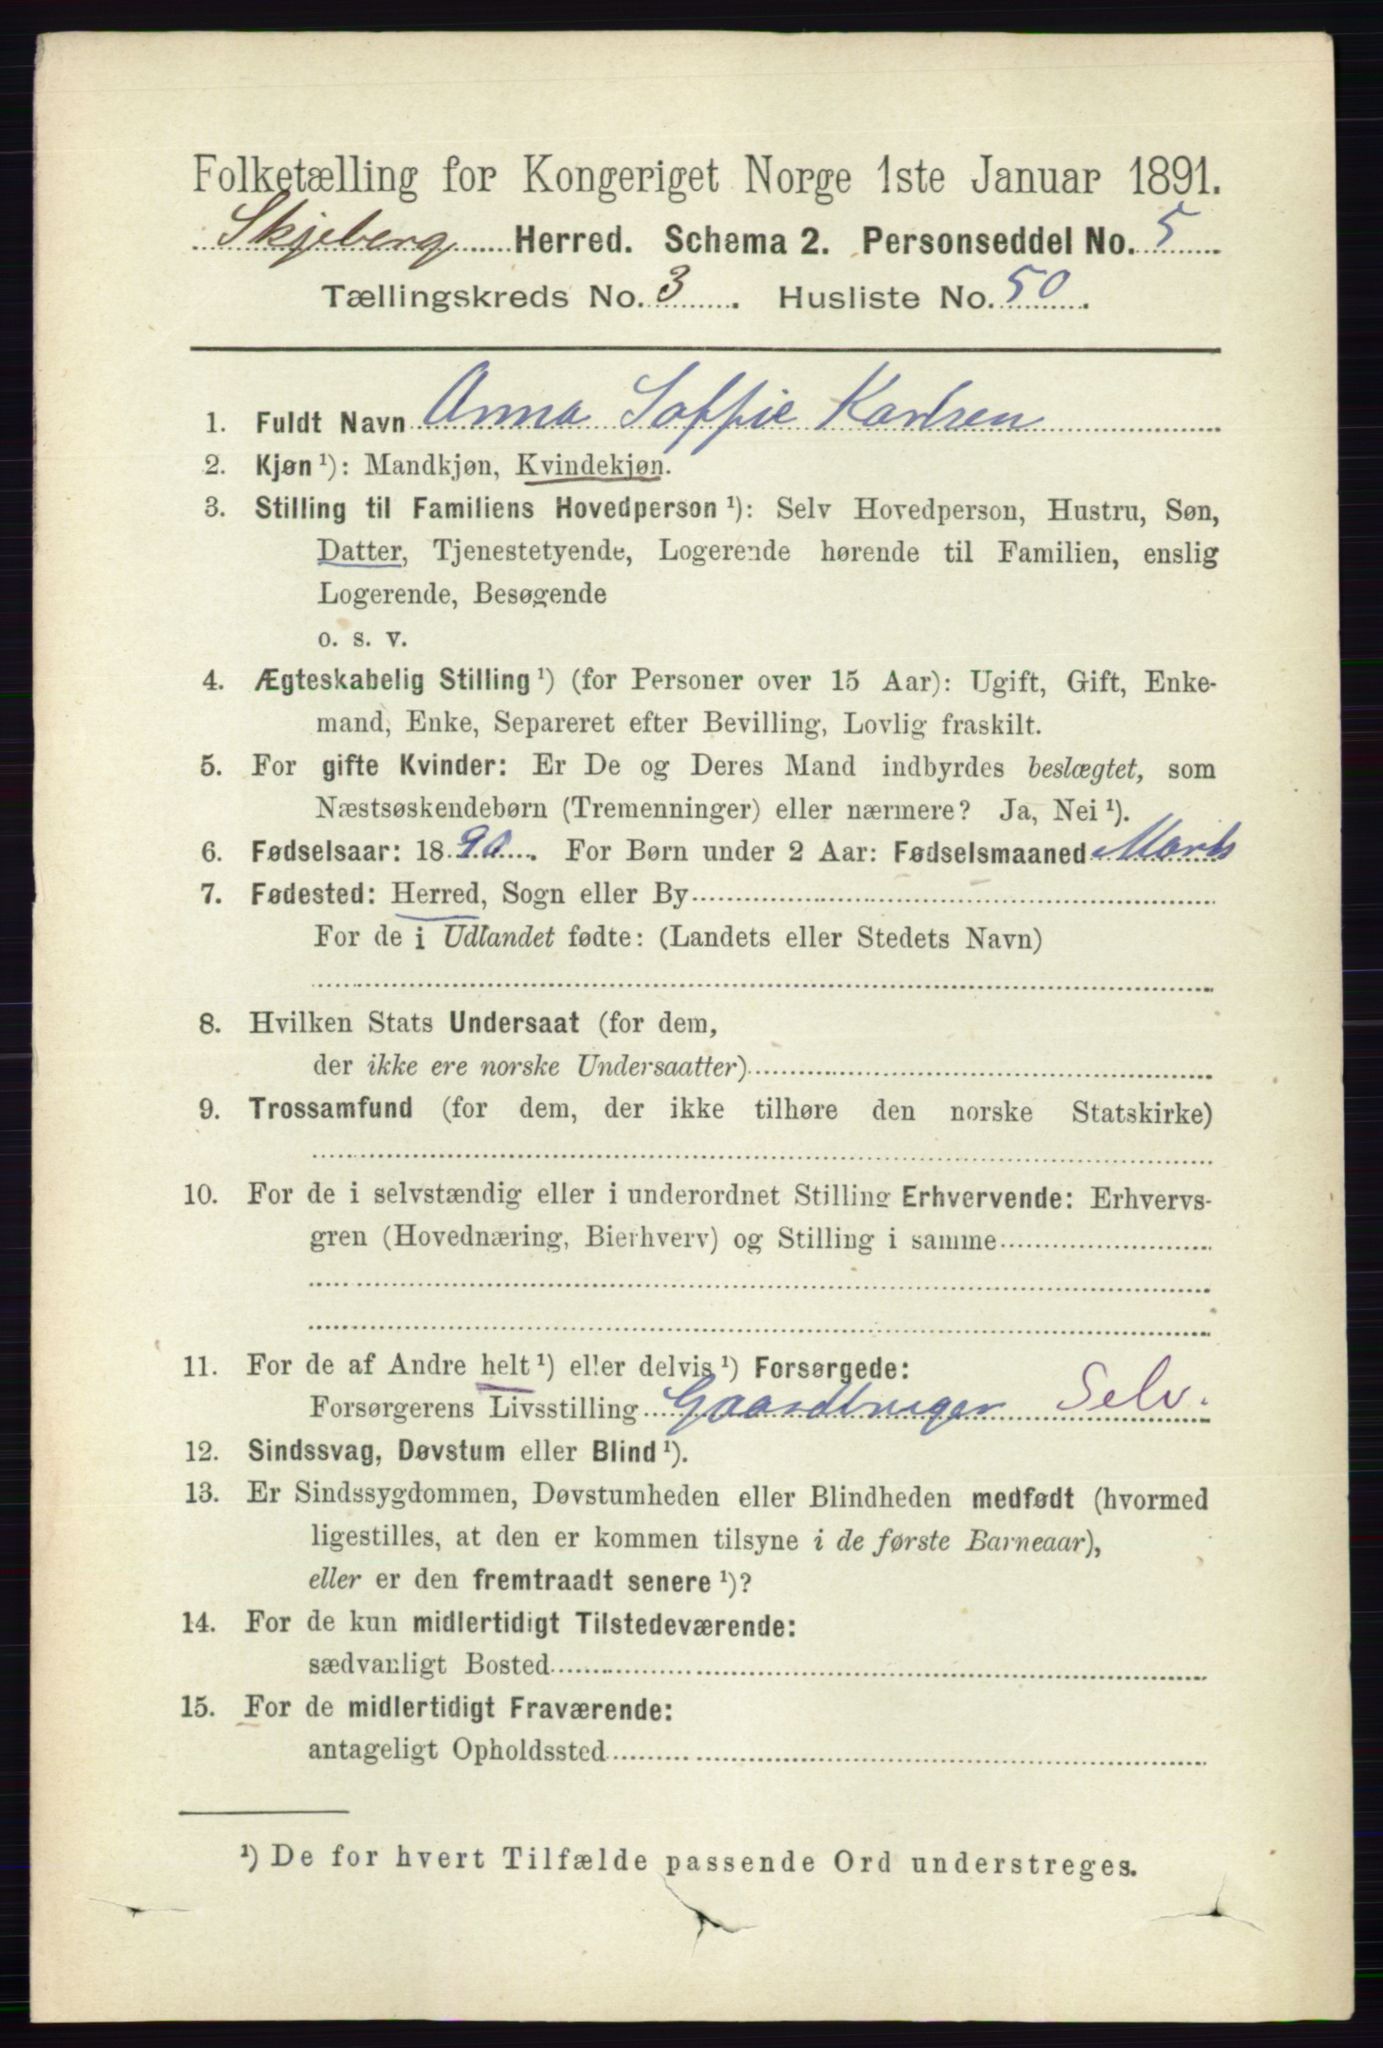 Folketælling for Kongeriget Norge 1ste Januar 1891.
Skjeberg Herred. Schema 2. Personseddel No. 5
Tællingskreds No. 3. Husliste No. 50.
1. Fuldt Navn Anna Soffie Karlsen
2. Kjøn ¹): Mandkjøn, Kvindekjøn.
3. Stilling til Familiens Hovedperson ¹): Selv Hovedperson, Hustru, Søn,
Datter, Tjenestetyende, Logerende hørende til Familien, enslig
Logerende, Besøgende
o. s. v.
4. Ægteskabelig Stilling ¹) (for Personer over 15 Aar): Ugift, Gift, Enke-
mand, Enke, Separeret efter Bevilling, Lovlig fraskilt.
5. For gifte Kvinder: Er De og Deres Mand indbyrdes beslægtet, som
Næstsøskendebørn (Tremenninger) eller nærmere? Ja, Nei ¹).
6. Fødselsaar: 1890. For Børn under 2 Aar: Fødselsmaaned Marts
7. Fødested: Herred, Sogn eller By
For de i Udlandet fødte: (Landets eller Stedets Navn)
8. Hvilken Stats Undersaat (for dem,
der ikke ere norske Undersaatter)
9. Trossamfund (for dem, der ikke tilhøre den norske Statskirke)
10. For de i selvstændig eller i underordnet Stilling Erhvervende: Erhvervs-
gren (Hovednæring, Bierhverv) og Stilling i samme
11. For de af Andre helt ¹) eller delvis ¹) Forsørgede:
Forsørgerens Livsstilling Gaardbruger Selv.
12. Sindssvag, Døvstum eller Blind ¹).
13. Er Sindssygdommen, Døvstumheden eller Blindheden medfødt (hvormed
ligestilles, at den er kommen tilsyne i de første Barneaar),
eller er den fremtraadt senere ¹)?
14. For de kun midlertidigt Tilstedeværende:
sædvanligt Bosted
15. For de midlertidigt Fraværende:
antageligt Opholdssted
¹) De for hvert Tilfælde passende Ord understreges.